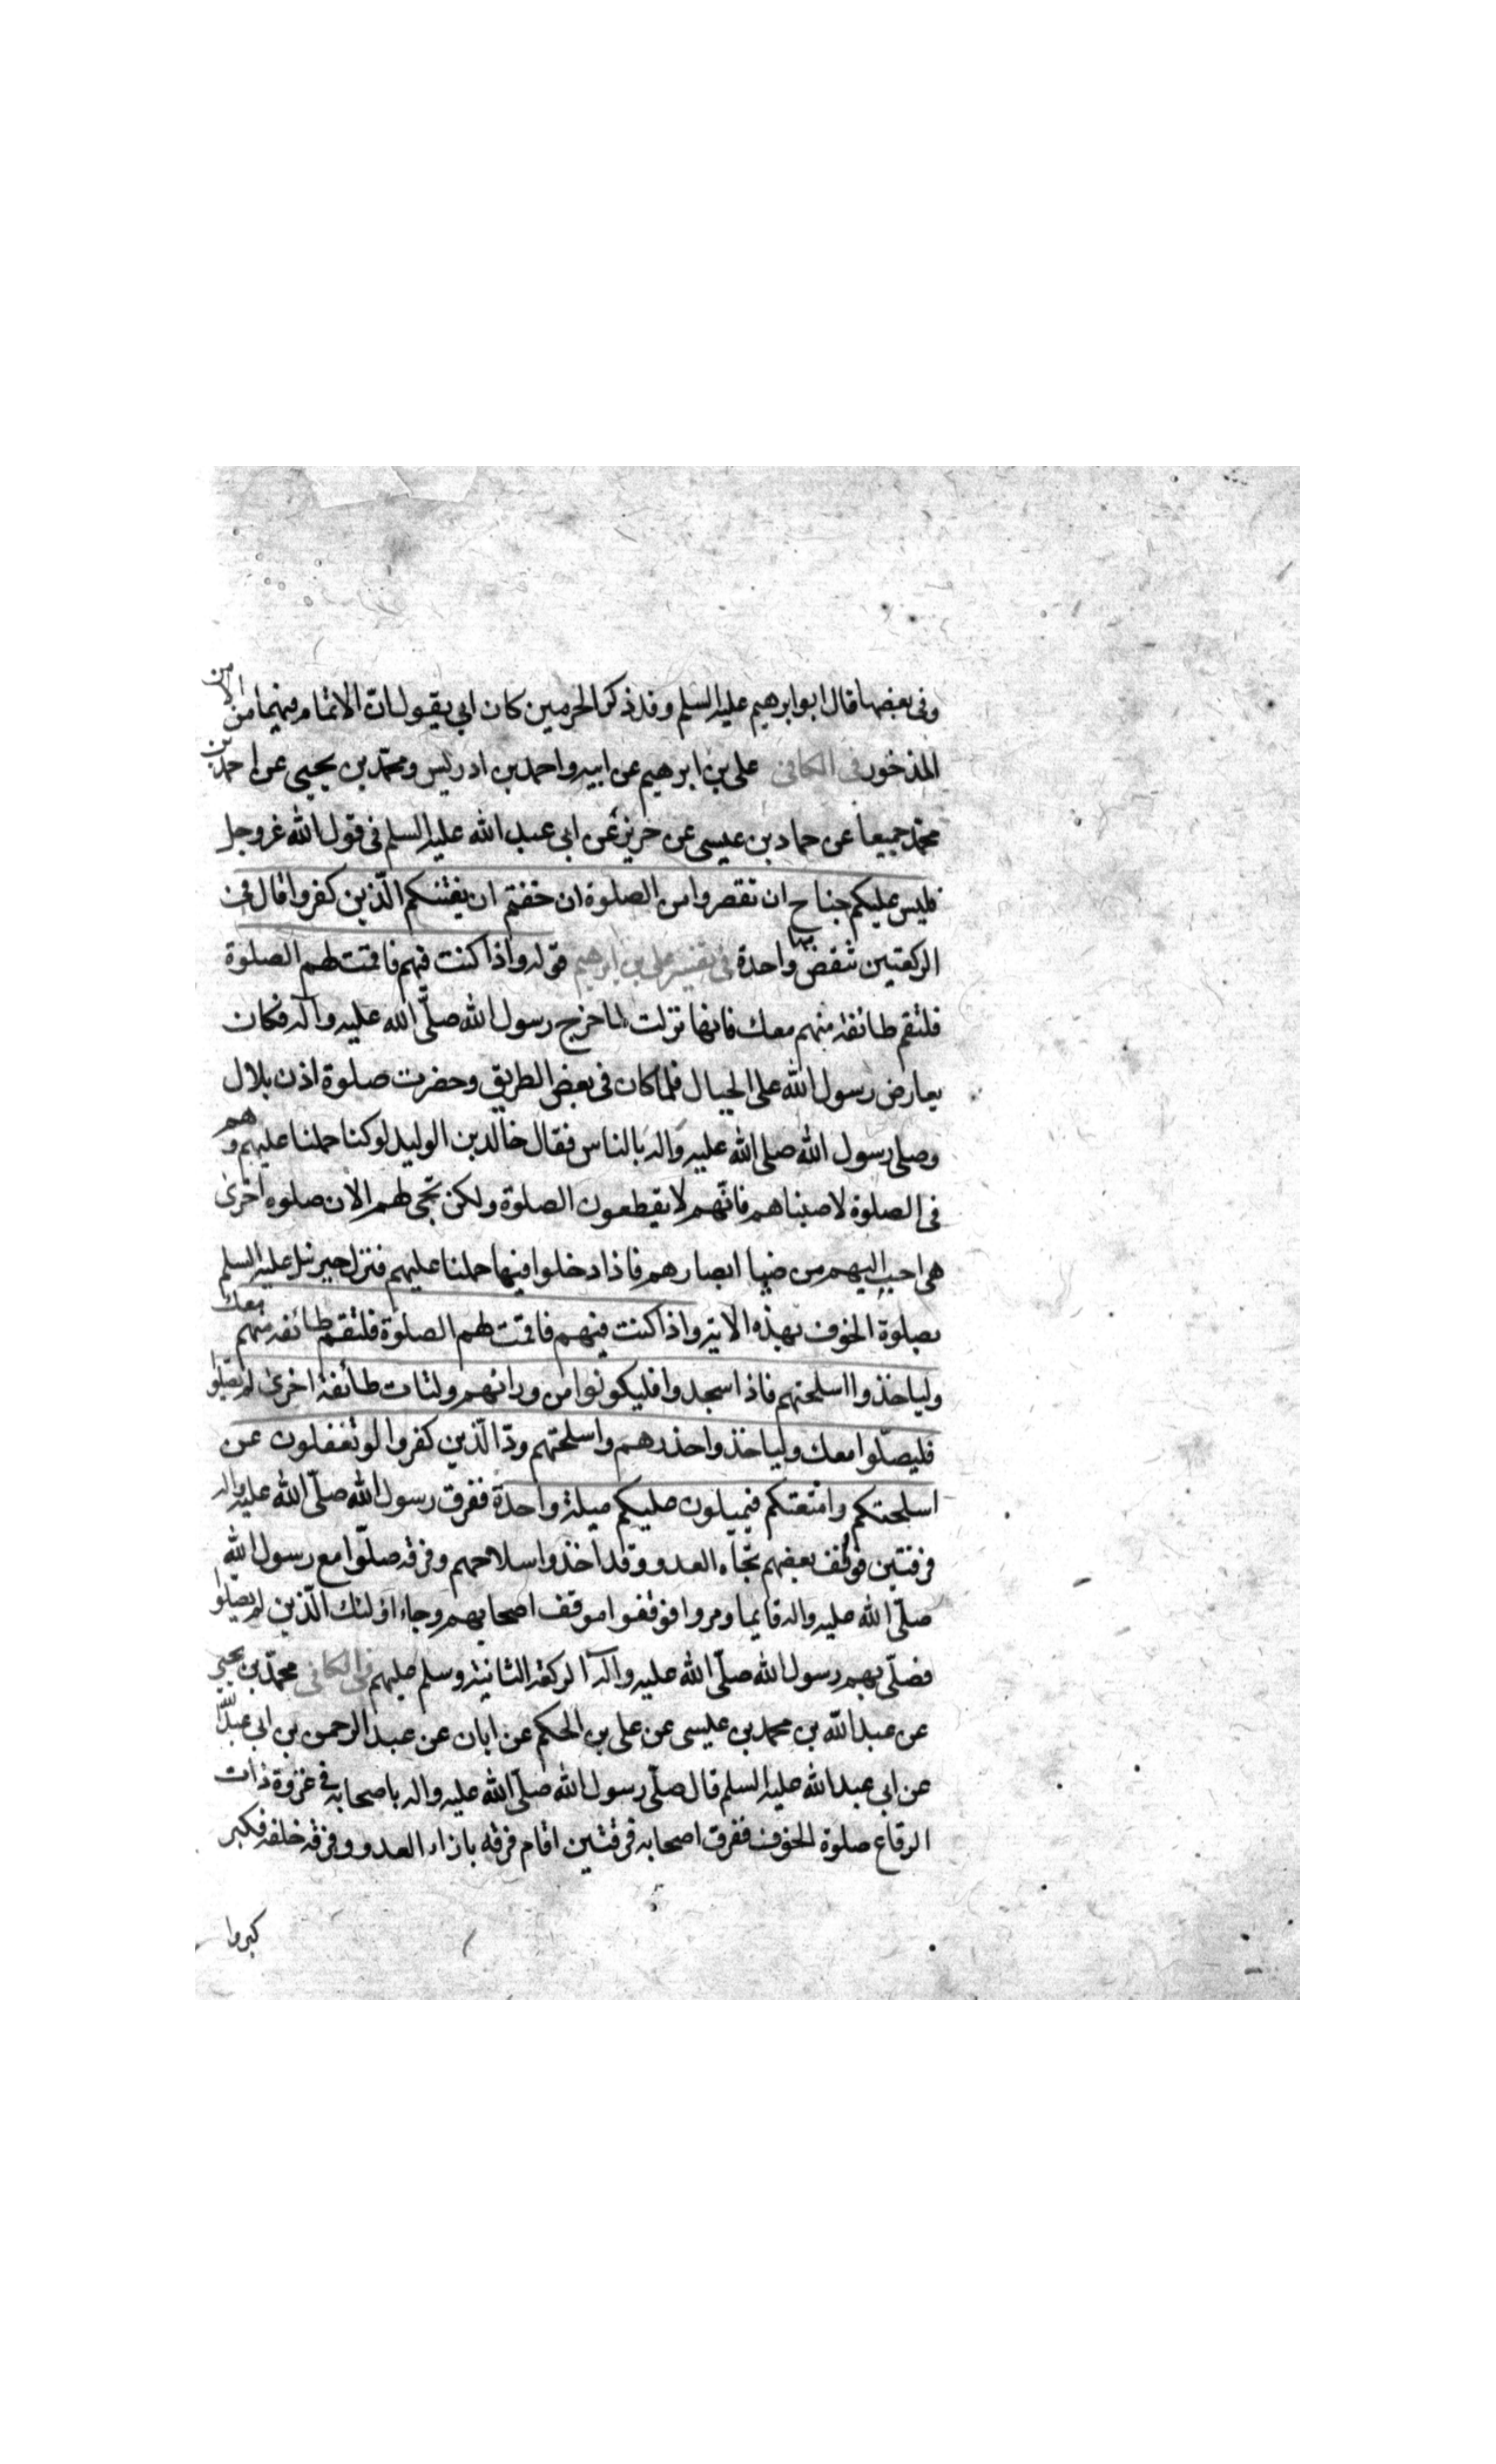 وفى بعضها قال ابو ابرهيم عليه السلم وقد ذكر الحرمين كان ابى يقول ان الاتمام فيهما من الامر
المذخور فى الكافى على بن ابرهيم عن ابيه واحمد بن ادريس ومحمد بن يحيى عن احمد بن
محمد جميعا عن حماد بن عيسى عن حريز عن ابى عبد الله عليه السلم فى قول الله عز وجل
فليس عليكم جناح ان تقصروا من الصلوة ان خفتم ان يفتنكم الّذين كفروا قال فى
الركعتين تنقص منها واحدة فى تفسير على بن ابرهيم قوله واذا كنت فيهم فاقمت لهم الصلوة
فلتقم طائفة منهم معك فانها نزلت لما خرج رسول الله صلّى الله عليه وآله فكان
يعارض رسول الله على الجبال فلما كان فى بعض الطريق وحضرت صلوة اذن بلال
وصلى رسول الله صلى الله عليه واله بالناس فقال خالد بن الوليد لو كنا حملنا عليهم وهم
فى الصلوة لاصبناهم فانّهم لا يقطعون الصلوة ولكن تجئ لهم الان صلوه اخرى
هى احب اليهم من ضيا ابصارهم فاذا دخلوا فيها حملنا عليهم فنزل جبرئيل عليه السلم
بصلوة الخوف بهذه الاية واذا كنت فيهم فاقمت لهم الصلوة فلتقم طائفه منهم معك
ولياخذوا اسلحتهم فاذا سجدوا فليكونوا من ورائهم ولتات طائفة اخرى لم يصلّوا
فليصلّوا معك ولياخذوا حذرهم واسلحتهم ودّ الّذين كفروا لو تغفلون عن
اسلحتكم وامتعتكم فيميلون عليكم ميلة واحدة ففرق رسول الله صلّى الله عليه واله
فرقتين فوقف بعضهم تجاه العدو وقد اخذوا سلاحهم وفرقه صلّوا مع رسول الله
صلّى الله عليه واله قايما ومروا فوقفوا موقف اصحابهم وجاء اولئك الّذين لم يصلّوا
فصلّى بهم رسول الله صلّى الله عليه وآله الركعة الثانية وسلم عليهم فى الكافى محمّد بن يحيى
عن عبد الله بن محمد بن عيسى عن على بن الحكم عن ابان عن عبد الرحمن بن ابى عبد الله
عن ابى عبد الله عليه السلم قال صلّى رسول الله صلّى الله عليه واله باصحابه فى غزوة ذات
الرقاع صلوة الخوف ففرق اصحابه فرقتين اقام فرقه بازاء العدو وفرقه خلفه فكبر
كبروا